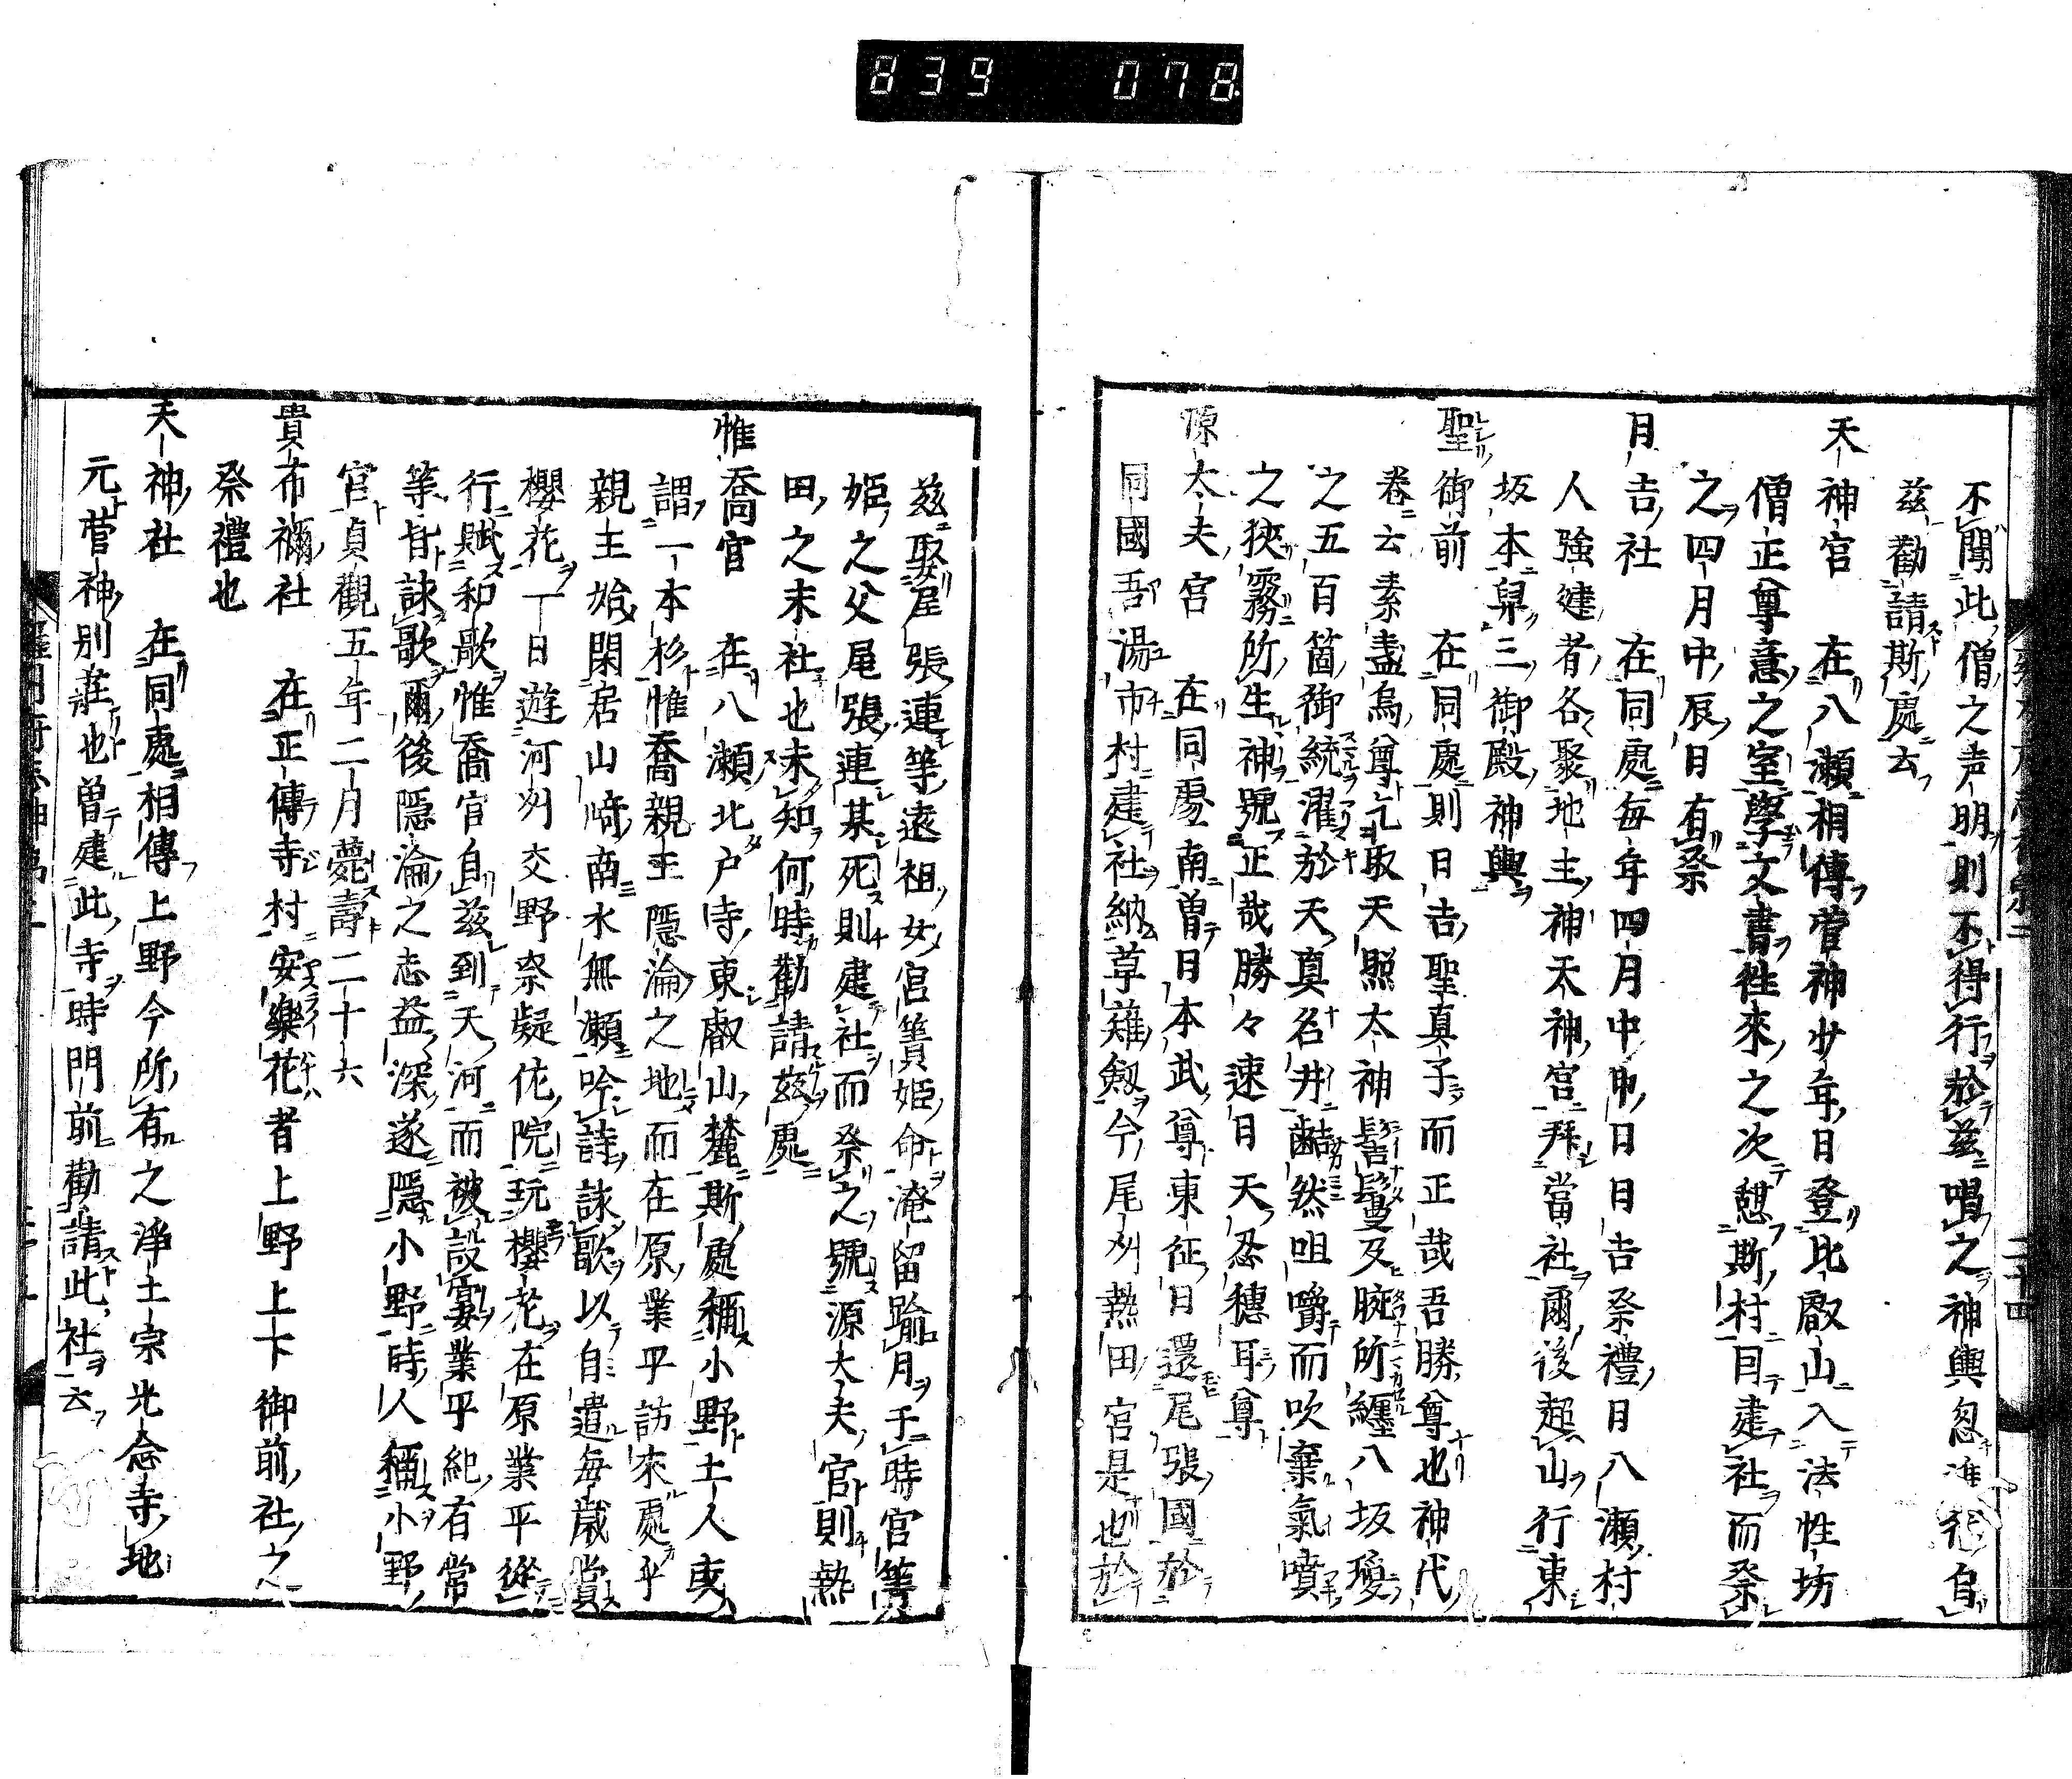 839 078
不聞此僧之声明則不得行於茲唱之神輿忽 自
茲勸請斯處云
天神宮 在八瀬相傳菅神少年日登比叡山入法性坊
僧正尊意之室學文書徃來之次憇斯村因建社而祭
之四月中辰日有祭
日吉社 在同處每年四月中申日日吉祭禮日八瀬村
人強健者各聚地主神天神宮拜當社爾後超山行東
坂本舁三御殿神輿
聖御前 在同處則日吉聖真子而正哉吾勝尊也神代
卷云素盞烏尊乞取天照太神髻鬘及腕所纏八坂瓊
之五百箇御統濯於天真名井齰然咀嚼而吹棄氣噴
之狹霧所生神號正哉勝々速日天忍穗耳尊
源太夫宮 在同處南曽日本武尊東征日還尾張國於
同國吾湯市村建社納草薙劔今尾刕熱田宮是也於
茲娶尾張連等遠祖女宮簀姬命淹留踰月于時宮簀
姬之父尾張連某死則建社而祭之號源大夫宮則熱
田之末社也未知何時勸請茲處
惟喬宮 在八瀬北戸寺東叡山麓斯處稱小野土人或
謂一本杉惟喬親王隱淪之地而在原業平訪來處乎
親王始閑居山崎南水無瀬吟詩詠歌以自遣每歲賞
櫻花一日遊河刕交野 院玩櫻花在原業平從
行賦和歌惟喬宮自茲到天河而被設宴業平紀有常
等皆詠歌爾後隱淪之志益深遂隱小野時人稱小野
宮貞觀五年二月薨壽二十六
貴布禰社 在正傳寺村安樂花者上野上下御前社之
祭禮也
天神社 在同處相傳上野今所有之淨土宗光念寺地
元菅神别莊也曽建此寺時門前勸請此社云